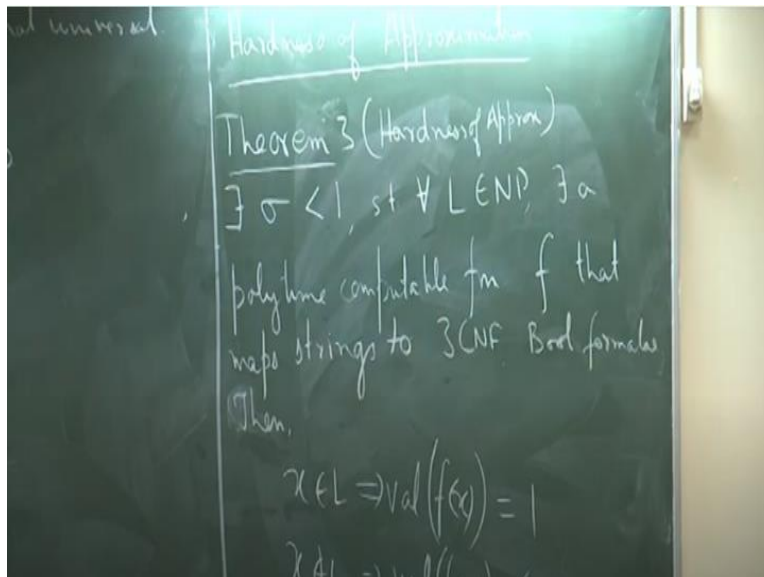 universal.
Hardness of Approximation
Theorem 3 (Hardness of Approx)
∃ σ < 1, st ∀ L ∈ NP, ∃ a
polytime computable fn f that
maps strings to 3CNF Bool formulas
Then,
x ∈ L ⇒ val(f(x)) = 1